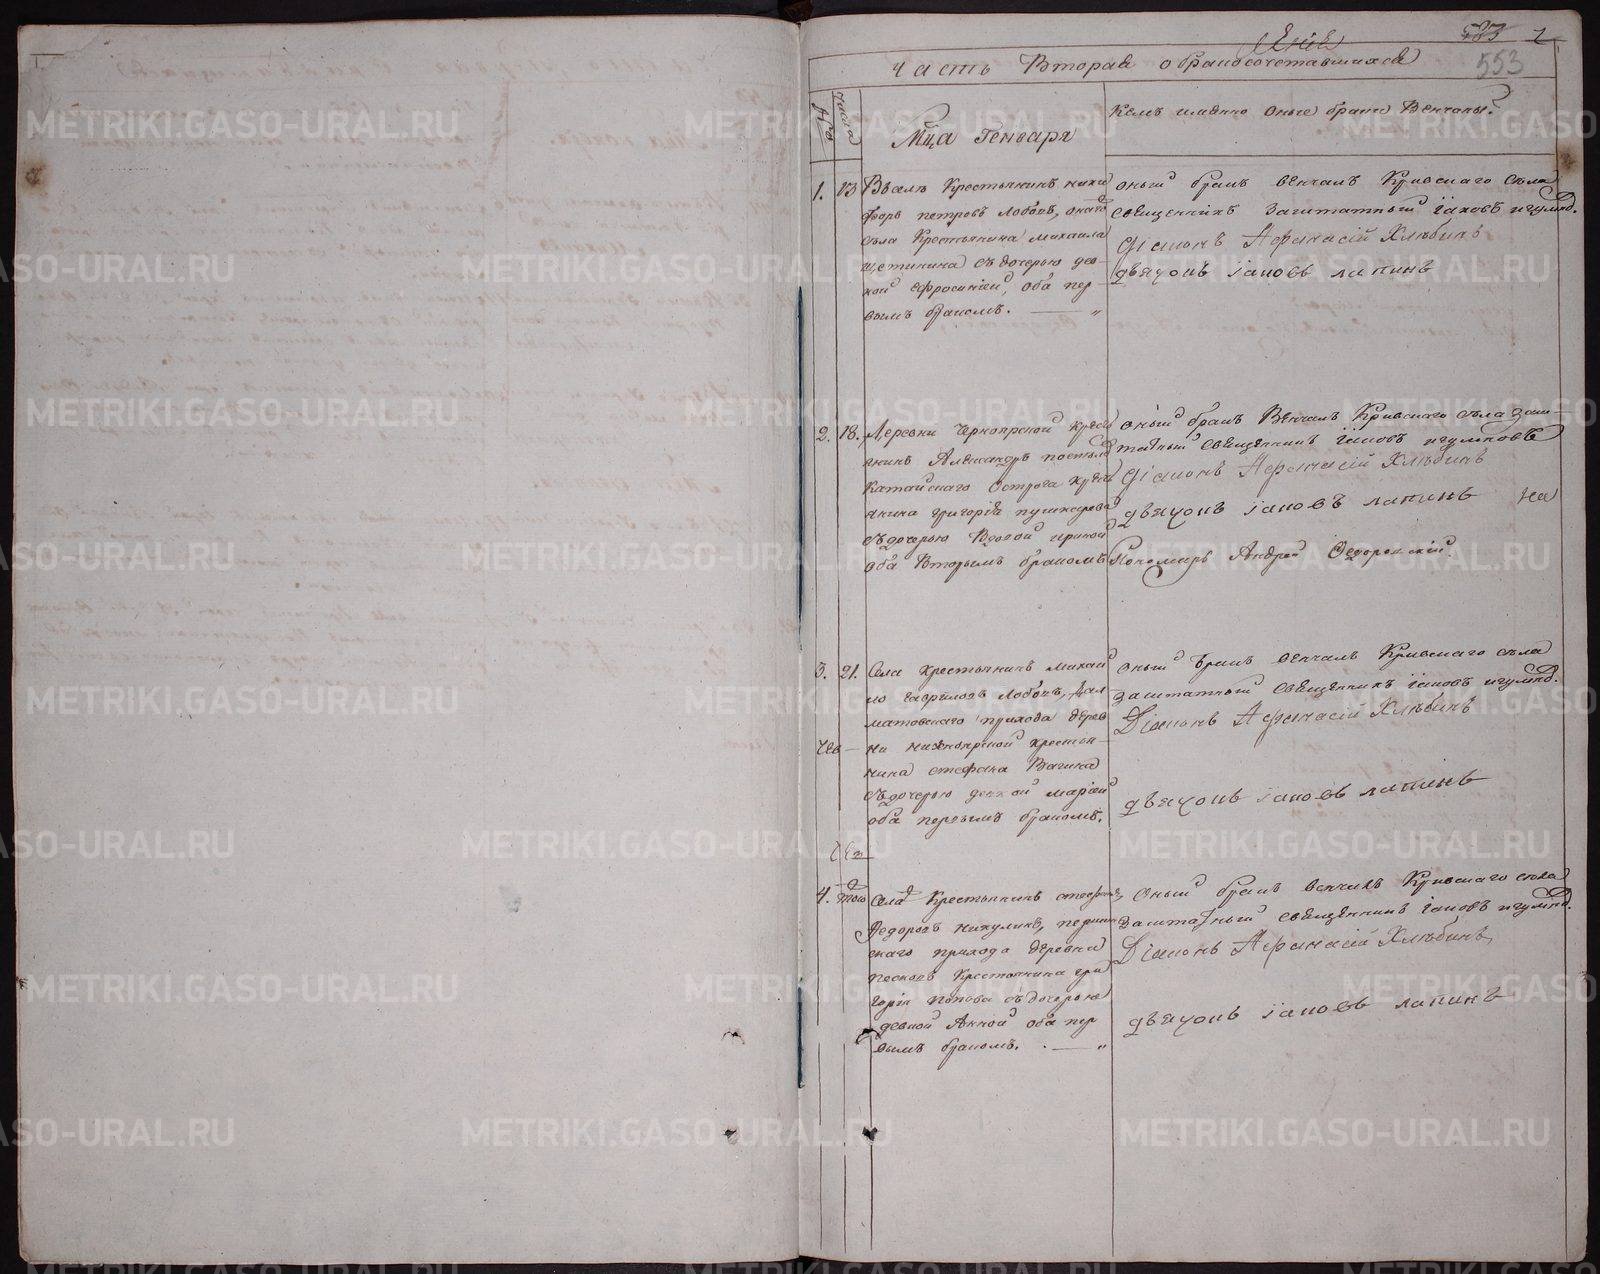 553
Часть Вторая о бракосочетавшихся
№
числа
Мца Генваря
Кемъ именно оные браки Венчаны?
1. 13
В селе Крестьянинъ ники
форъ петровъ Лобовъ, онаго
села Крестьянина михаила
щетинина съ дочерью дев-
кой ефросиніей, оба пер-
вымъ бракомъ.
оный бракъ венчалъ Кривскаго села
священникъ Заштатный Iаковъ игумнв.
діаконъ Афанасій Хлѣбинъ
дьячокъ іаковъ лапинъ
2. 18.
Деревни Черноярской крест
янинъ Александръ
Катайскаго Острога крест
янина григорія
съ дочерью Вдовой ириной
оба Вторымъ бракомъ
оный бракъ Венчалъ Кривскаго села заш-
татный священникъ Iаковъ игумновъ
діаконъ Афанасій Хлѣбинъ
дьячокъ іаковъ лапинъ
Пономарь Андрей Федоровскій.
3. 21.
Села крестьянинъ михай
ло гавриловъ Лобовъ, Дал
матовскаго прихода дерев
ни нижноярской крестья-
нина стефана Вагина
съ дочерью девкой маріей
оба первымъ бракомъ.
оный бракъ венчалъ Кривскаго села
заштатный священникъ іаковъ игумнв.
Діаконъ Афанасій Хлѣбинъ
дьячокъ іаковъ лапинъ
4. того
Села Крестьянинъ стефанъ
Федоровъ никулинъ,
скаго прихода деревни
песковъ Крестьянина гри
горія попова съ дочерью
девкой Анной оба пер
вымъ бракомъ.
оный бракъ венчалъ Кривскаго села
Заштатный священникъ Iаковъ игумнв.
Діаконъ Афанасій Хлѣбинъ
дьячокъ іаковъ лапинъ
METRIKI.GASO-URAL.RU